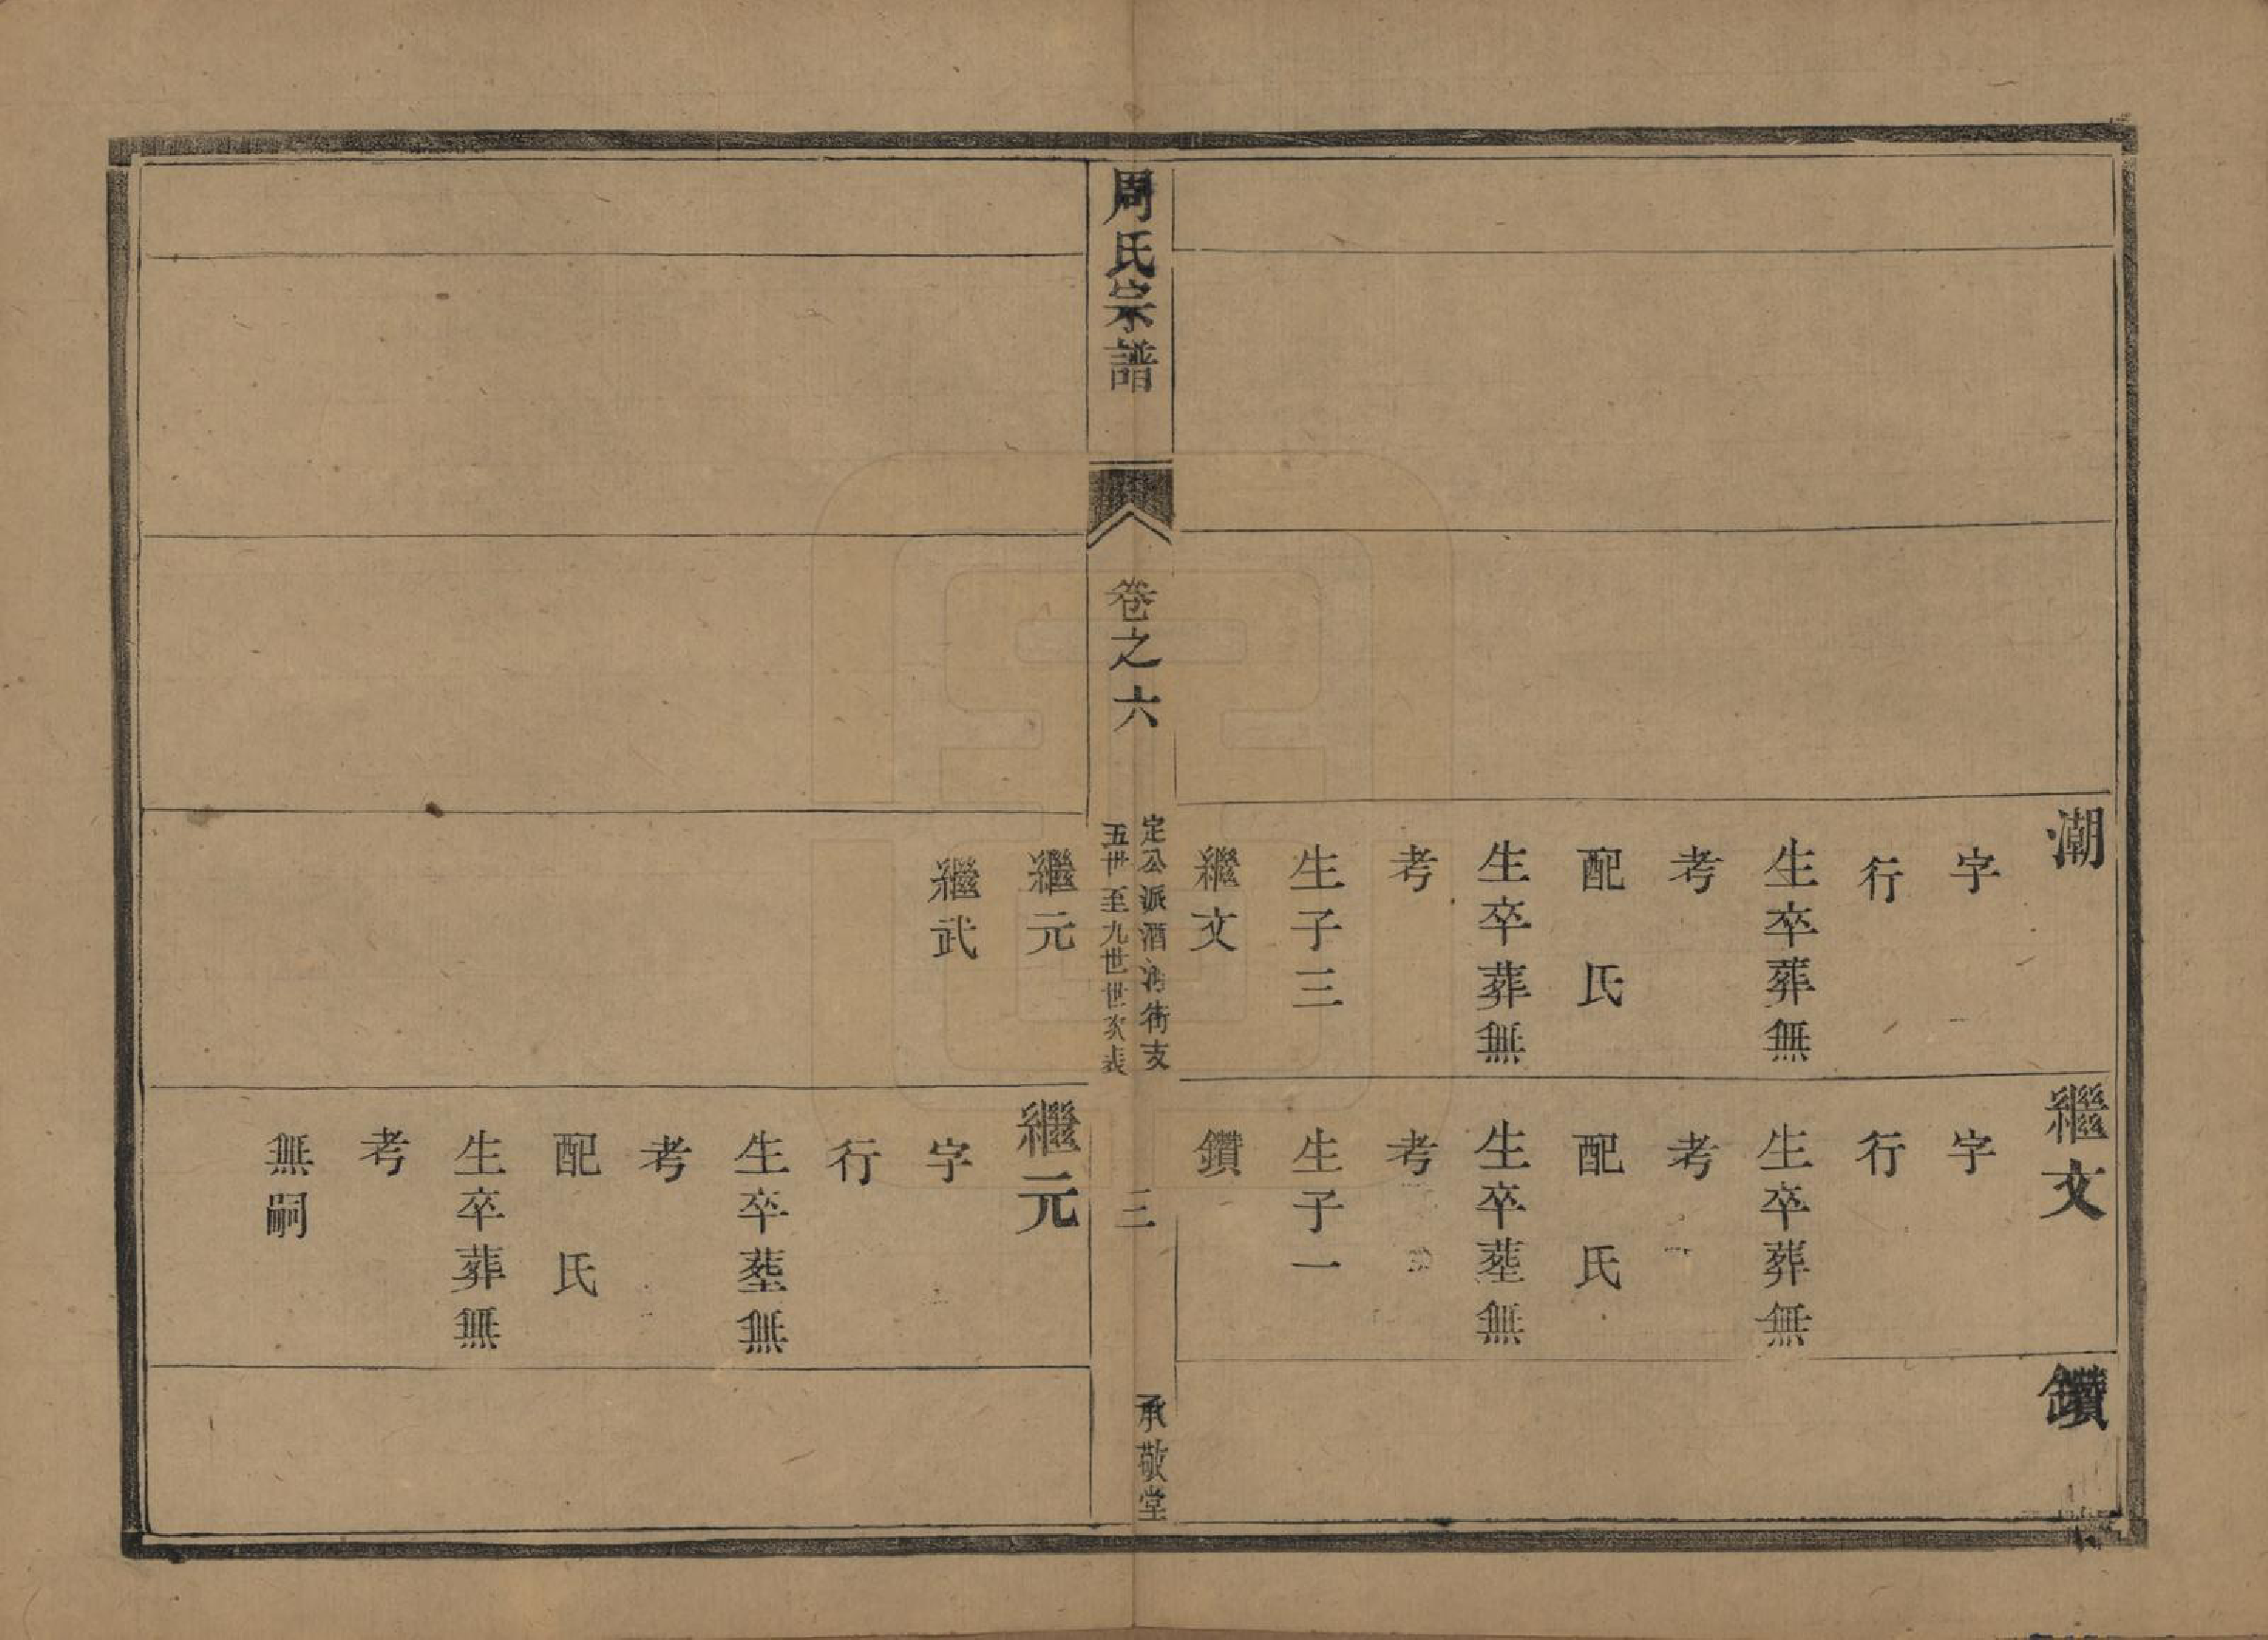 潮
字
行
生卒葬無
考
配氏
生卒葬無
考
生子三
繼文
繼文
字
行
生卒葬無
考
配氏
生卒塟無
考
生子一
鑽
鑽
周氏宗譜
卷之六
定公派酒街支
五世至九世世次表
三
承敬堂
繼元
繼武
繼元
字
行
生卒塟無
考
配氏
生卒葬無
考
無嗣